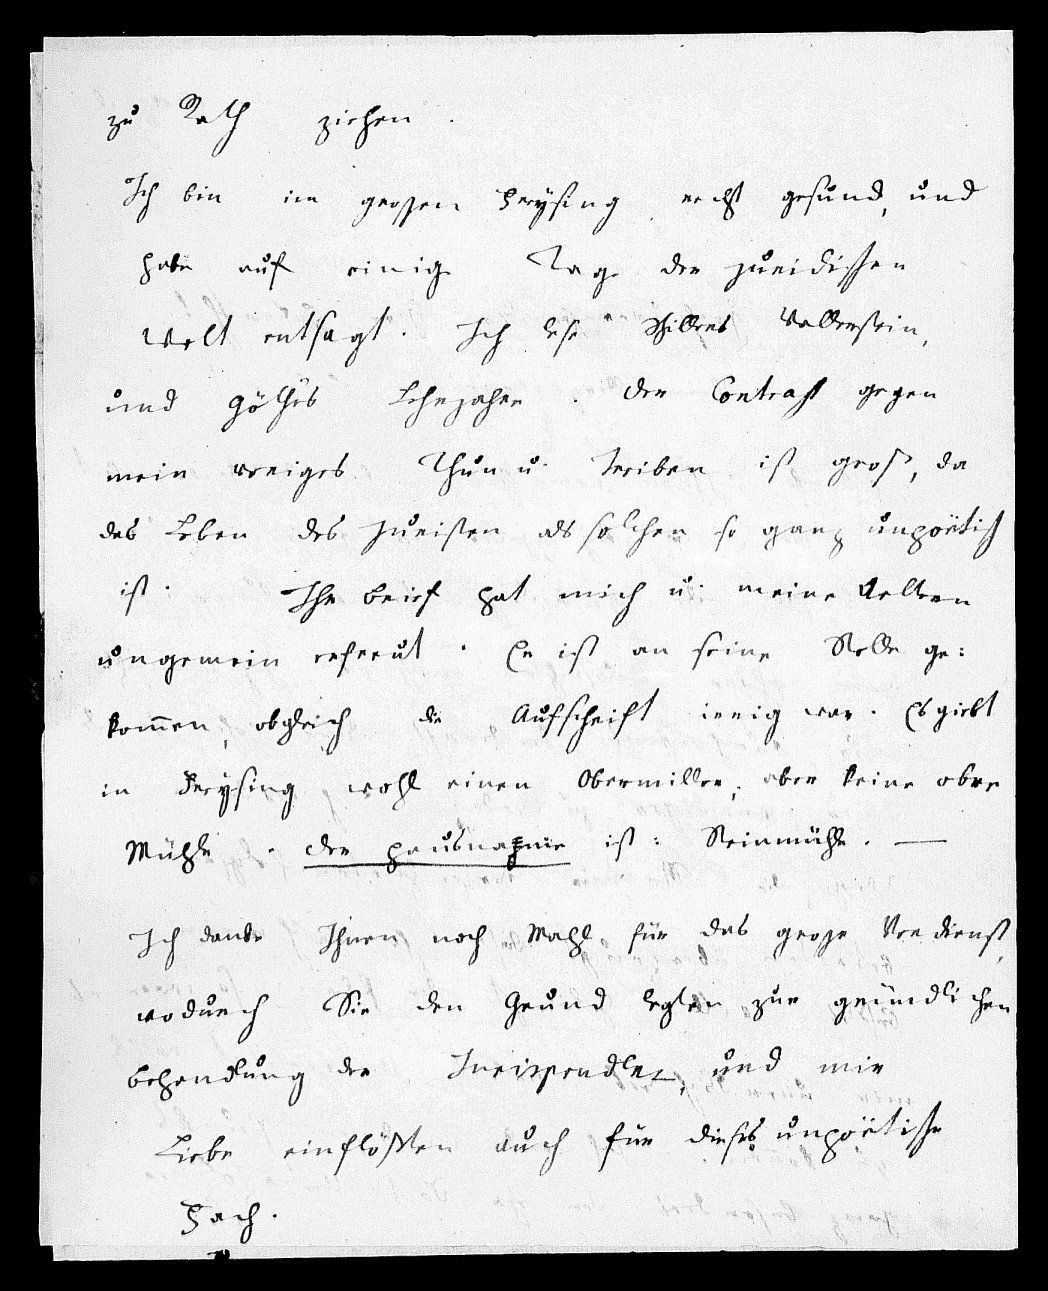 zu Rath ziehen.
Ich bin im grossen Freysing recht gesund, und
habe auf einige Tage der juridischen
Welt entsagt. Ich lese Schillers Vallenstein,
und Göthe's Lehrjahre. Der Contrast gegen
mein voriges Thun u. Treiben ist gros, da
das Leben des Juristen als solchen so ganz unpoëtisch
ist. Ihr Brief hat mich u. meine Aeltern
ungemein erfreut. Er ist an seine Stelle ge:
kom̄en, obgleich die Aufschrift irrig war. Es giebt
in Freysing wohl einen Obermiller, aber keine obre
Mühle. der Hausnahme ist: Steinmühle. —
Ich danke Ihnen noch Mahl für das grosse Verdienst,
wodurch Sie den Grund legten zur gründlichen
behandlung der Jurisprudenz, und mir
Liebe einflößten auch für dieses unpoëtische
Fach.